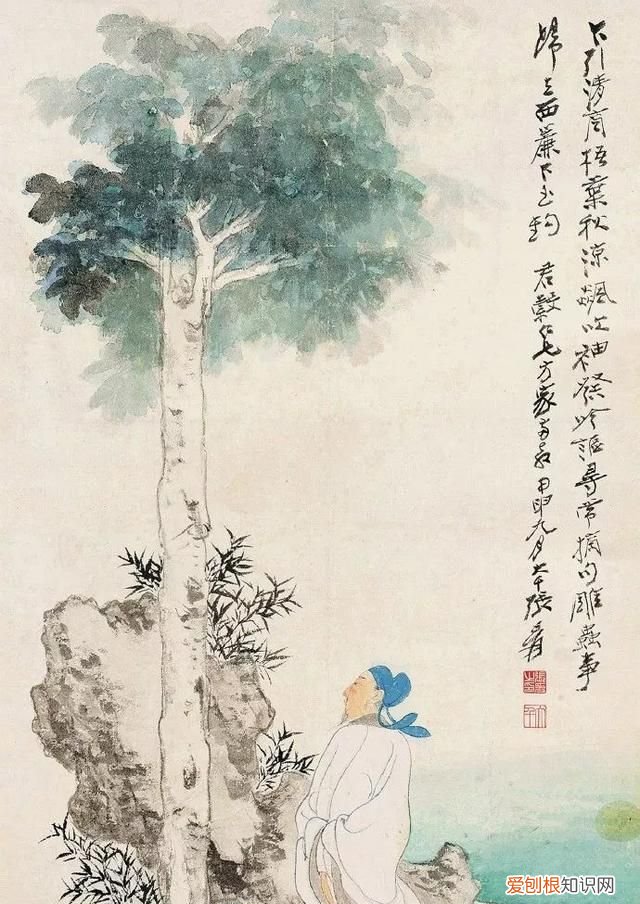 引清商梧葉秋涼飆吹袖發吟謳尋常摘句雕蟲事
歸去西簾下玉鈎 君穀仁兄方家 教 甲申九月大千張爰
張爰之印
大千
爱刨根知识网